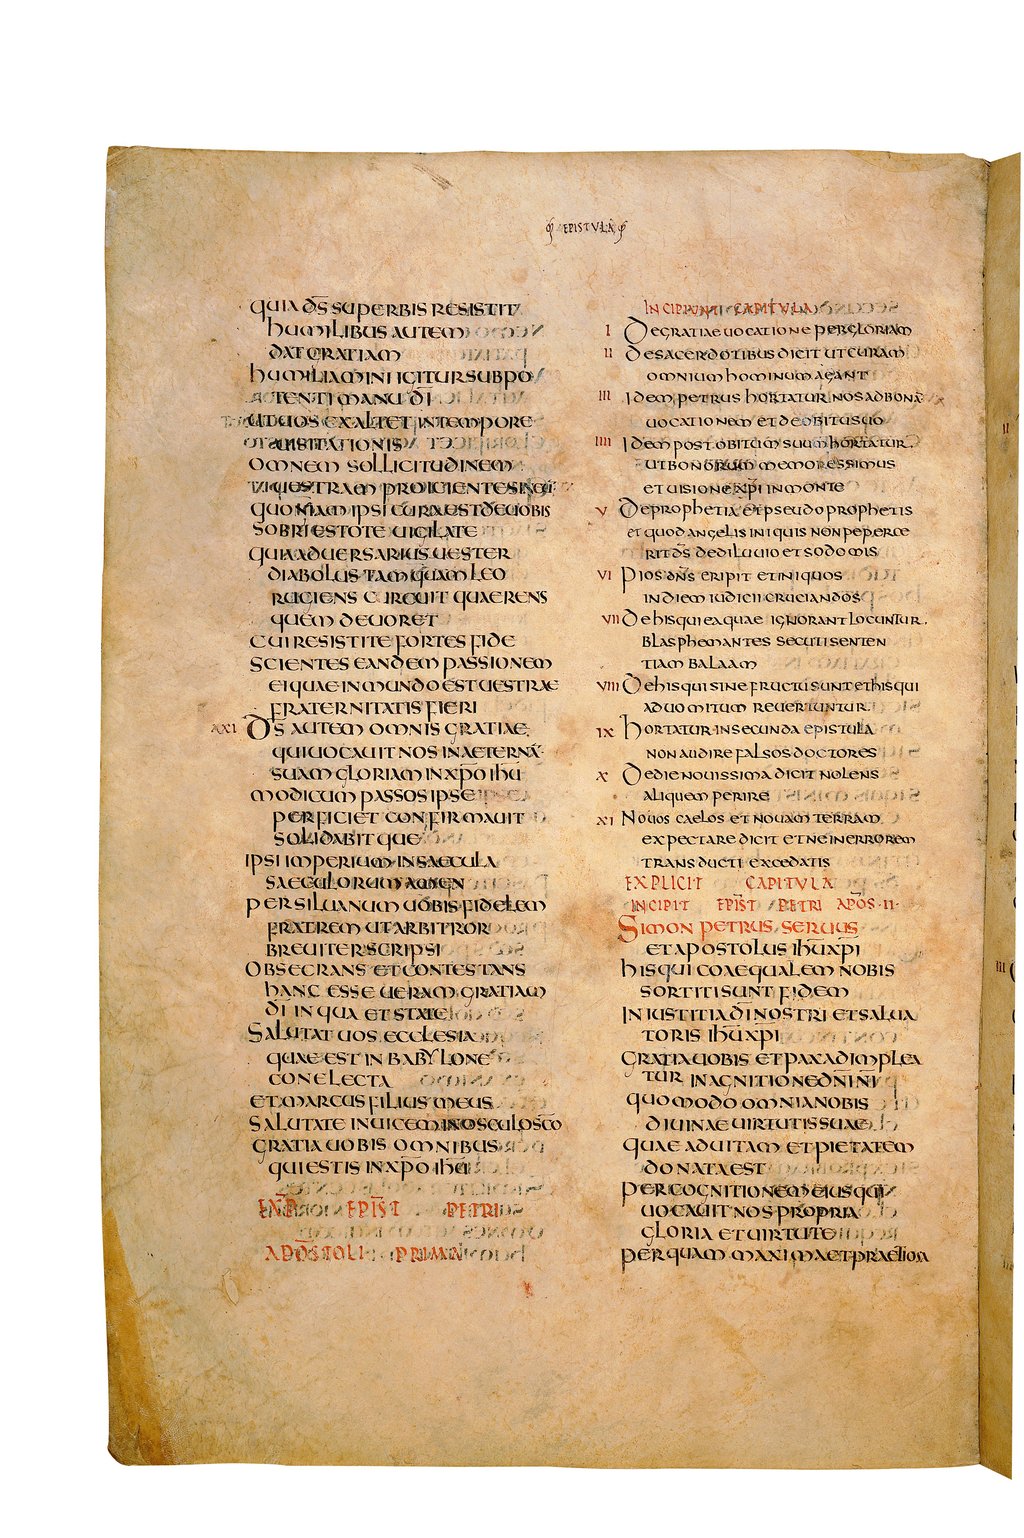 EPISTULA
QUIA D̄S SUPERBIS RESISTIT
HUMILIBUS AUTEM
DAT GRATIAM
HUMILIAMINI IGITUR SUB PO
TENTI MANU D̄I
UT UOS EXALTET IN TEMPORE
UISITATIONIS
OMNEM SOLLICITUDINEM
UESTRAM PROICIENTES IN EU
QUONIAM IPSI CURA EST DE UOBIS
SOBRII ESTOTE UIGILATE
QUIA ADUERSARIUS UESTER
DIABOLUS TAMQUAM LEO
RUGIENS CIRCUIT QUAERENS
QUEM DEUORET
CUI RESISTITE FORTES FIDE
SCIENTES EANDEM PASSIONEM
EI QUAE IN MUNDO EST UESTRAE
FRATERNITATIS FIERI
XXI D̄S AUTEM OMNIS GRATIAE
QUI UOCAUIT NOS IN AETERNĀ
SUAM GLORIAM IN XP̄O IHŪ
MODICUM PASSOS IPSE
PERFICIET CONFIRMAUIT
SOLIDABITQUE
IPSI IMPERIUM IN SAECULA
SAECULORUM AMEN
PER SILUANUM UOBIS FIDELEM
FRATREM UT ARBITROR
BREUITER SCRIPSI
OBSECRANS ET CONTESTANS
HANC ESSE UERAM GRATIAM
D̄I IN QUA ET STATE
SALUTAT UOS ECCLESIA
QUAE EST IN BABYLONE
CONELECTA
ET MARCUS FILIUS MEUS
SALUTATE INUICEM IN OSCULO SC̄O
GRATIA UOBIS OMNIBUS
QUI ESTIS IN XP̄O IHŪ
EXP̄ EPIS̄T PETRI
APOS̄TOLI PRIMA
INCIPIUNT CAPITULA
I DE GRATIAE UOCATIONE PER GLORIAM
II DE SACERDOTIBUS DICIT UT CURAM
OMNIUM HOMINUM AGANT
III IDEM PETRUS HORTATUR NOS AD BONĀ
UOCATIONEM ET DE OBITU SUO
IIII IDEM POST OBITUM SUUM HORTATUR
UT BONORUM MEMORES SIMUS
ET UISIONE XP̄I IN MONTE
V DE PROPHETIA ET PSEUDOPROPHETIS
ET QUOD ANGELIS INIQUIS NON PEPERCE
RIT D̄S DE DILUUIO ET SODOMIS
VI PIOS DN̄S ERIPIT ET INIQUOS
IN DIEM IUDICII CRUCIANDOS
VII DE HIS QUI EA QUAE IGNORANT LOCUNTUR
BLASPHEMANTES SECUTI SENTEN
TIAM BALAAM
VIII DE HIS QUI SINE FRUCTU SUNT ET HIS QUI
AD UOMITUM REUERTUNTUR
IX HORTATUR IN SECUNDA EPISTULA
NON AUDIRE FALSOS DOCTORES
X DE DIE NOUISSIMA DICIT NOLENS
ALIQUEM PERIRE
XI NOUOS CAELOS ET NOUAM TERRAM
EXPECTARE DICIT ET NE IN ERROREM
TRANSDUCTI EXCEDATIS
EXPLICIT CAPITULA
INCIPIT EPIS̄T PETRI APOS̄ II
SIMON PETRUS SERUUS
ET APOSTOLUS IHŪ XP̄I
HIS QUI COAEQUALEM NOBIS
SORTITI SUNT FIDEM
IN IUSTITIA D̄I NOSTRI ET SALUA
TORIS IHŪ XP̄I
GRATIA UOBIS ET PAX ADIMPLEA
TUR IN AGNITIONE DN̄I N̄I
QUOMODO OMNIA NOBIS
DIUINAE UIRTUTIS SUAE
QUAE AD UITAM ET PIETATEM
DONATA EST
PER COGNITIONEM EIUS QUI
UOCAUIT NOS PROPRIA
GLORIA ET UIRTUTE
PER QUAM MAXIMA ET PRAETIOSA
II
III